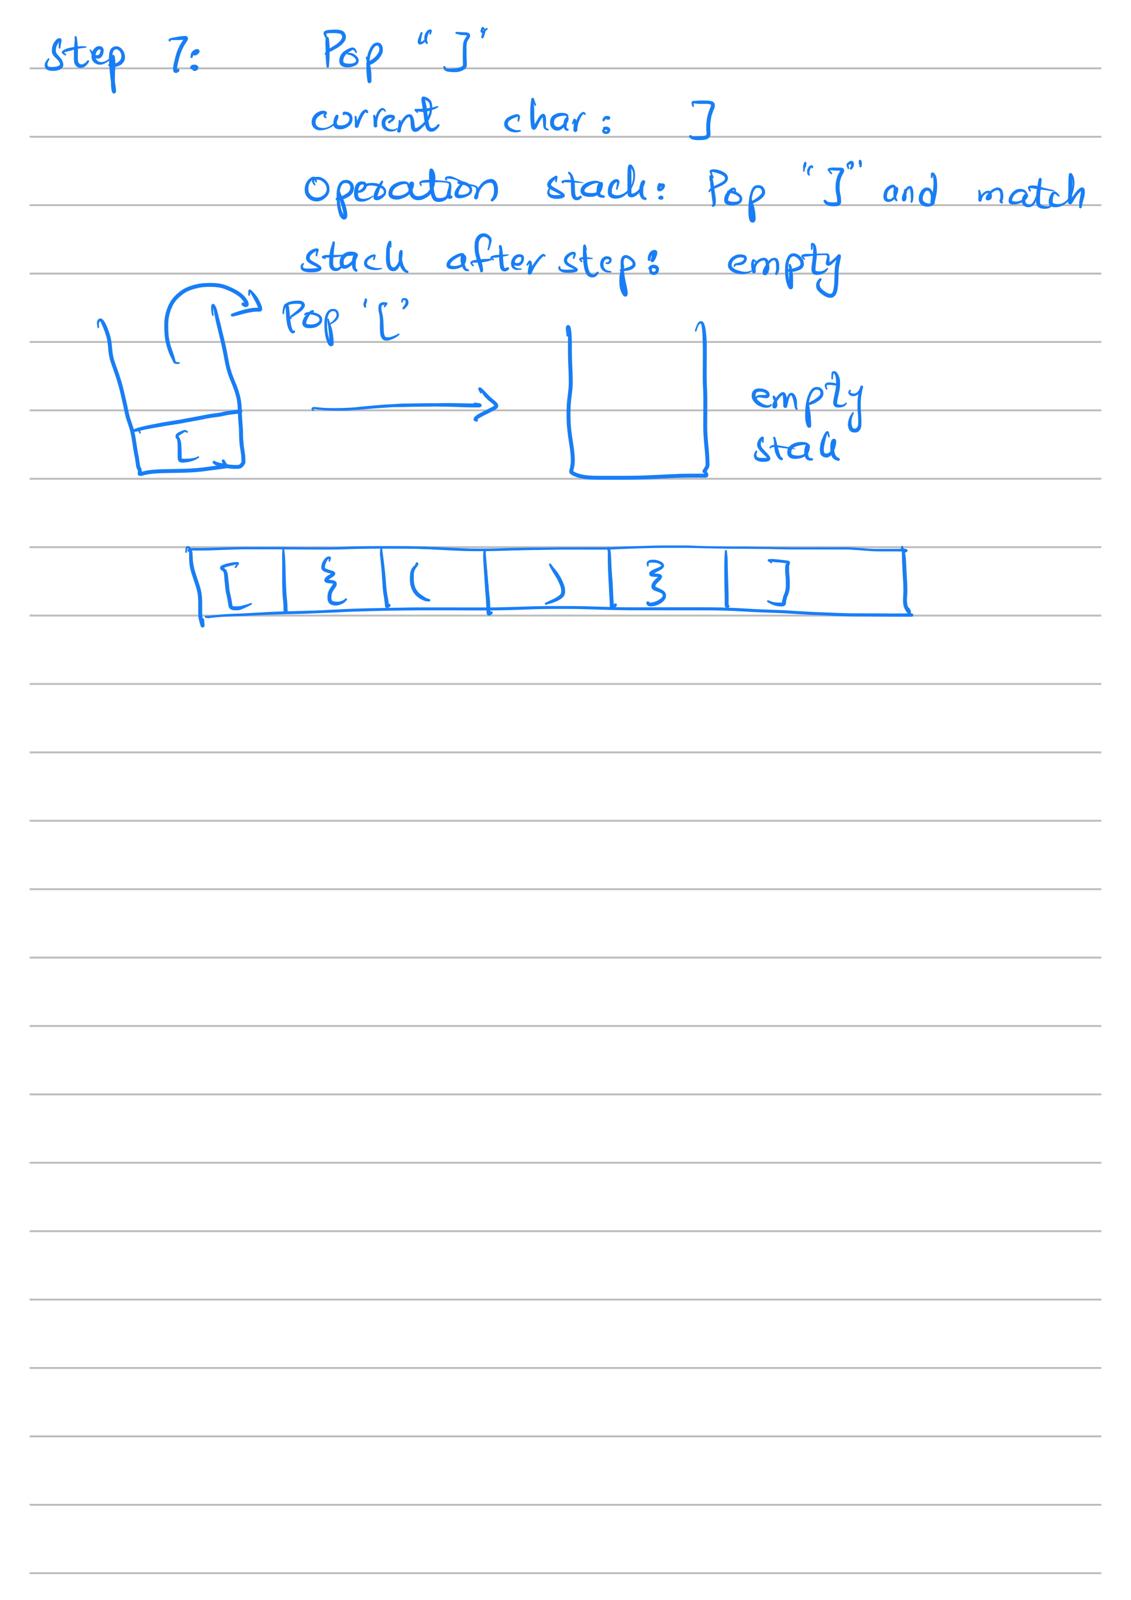 Step 7: Pop "]"
current char: ]
operation stack: Pop "]" and match
stack after step: empty
Pop '['
[
empty
stack
[ { ( ) } ]